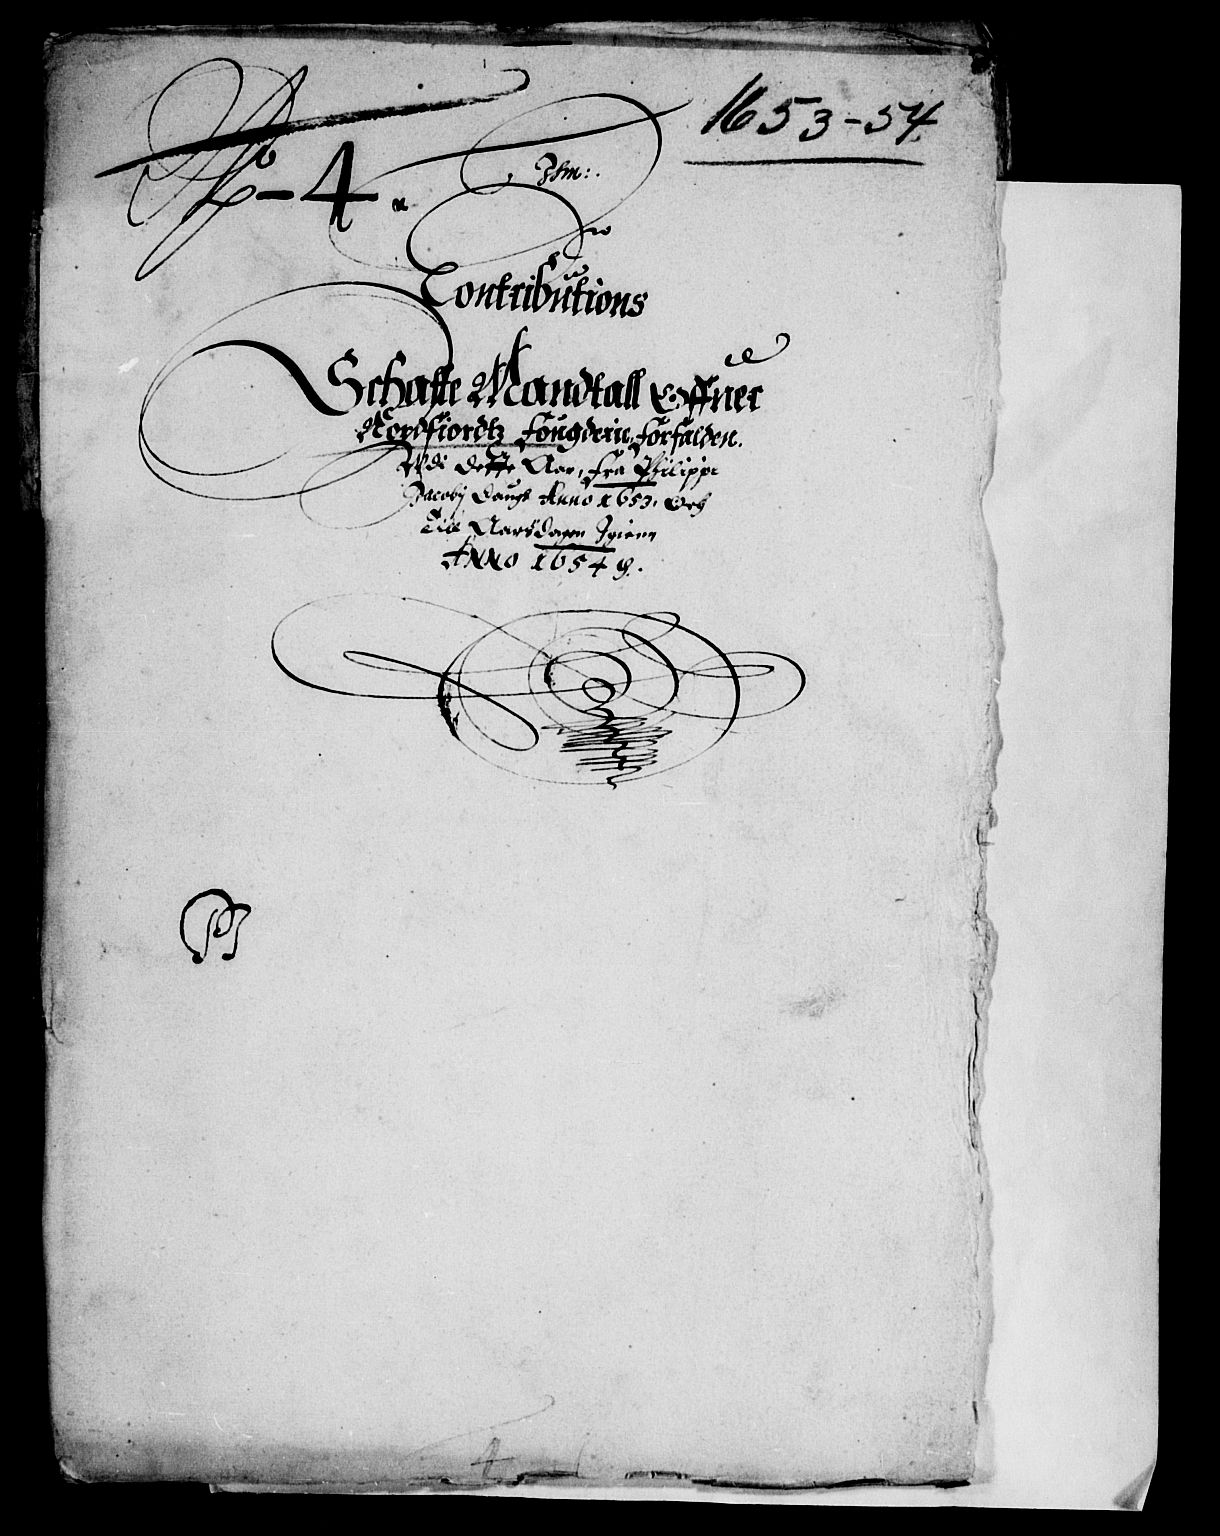 1653-54.
No-4.
Contributions
Schatte Mandtall Offuer
Nordfiordtz fougderij, forfalden.
Udi dette Aar, fra Philippi
Jacobj daugh Anno 1653. Och
Till Aarsdagen Igienn
Anno 1654
4